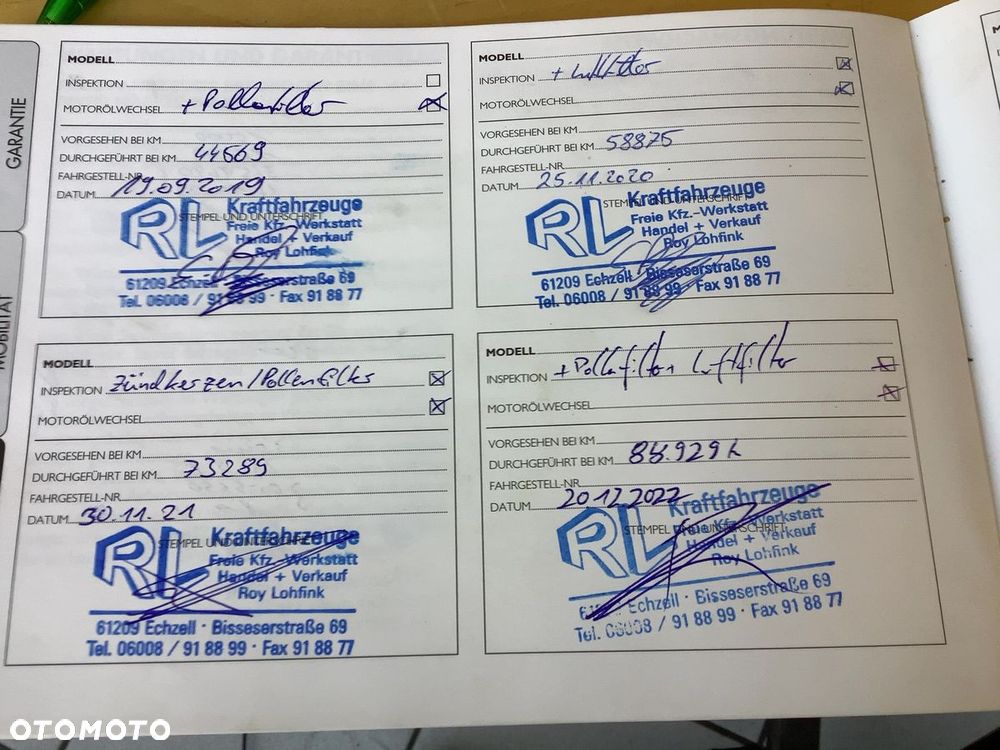 GARANTIE
MOBILITÄT
MODELL
INSPEKTION
MOTORÖLWECHSEL + Pollenfilter
VORGESEHEN BEI KM
DURCHGEFÜHRT BEI KM 44669
FAHRGESTELL-NR
DATUM 19.09.2019
STEMPEL UND UNTERSCHRIFT
RL Kraftfahrzeuge
Freie Kfz.-Werkstatt
Handel + Verkauf
Roy Lohfink
61209 Echzell · Bisseserstraße 69
Tel. 06008 / 91 88 99 · Fax 91 88 77
MODELL
INSPEKTION + Luftfilter
MOTORÖLWECHSEL
VORGESEHEN BEI KM
DURCHGEFÜHRT BEI KM 58875
FAHRGESTELL-NR
DATUM 25.11.2020
STEMPEL UND UNTERSCHRIFT
RL Kraftfahrzeuge
Freie Kfz.-Werkstatt
Handel + Verkauf
Roy Lohfink
61209 Echzell · Bisseserstraße 69
Tel. 06008 / 91 88 99 · Fax 91 88 77
MODELL
INSPEKTION Zündkerzen/Pollenfilter
MOTORÖLWECHSEL
VORGESEHEN BEI KM
DURCHGEFÜHRT BEI KM 73289
FAHRGESTELL-NR
DATUM 30.11.21
STEMPEL UND UNTERSCHRIFT
RL Kraftfahrzeuge
Freie Kfz.-Werkstatt
Handel + Verkauf
Roy Lohfink
61209 Echzell · Bisseserstraße 69
Tel. 06008 / 91 88 99 · Fax 91 88 77
MODELL
INSPEKTION + Pollenfilter Luftfilter
MOTORÖLWECHSEL
VORGESEHEN BEI KM
DURCHGEFÜHRT BEI KM 88.929
FAHRGESTELL-NR
DATUM 20.12.2022
STEMPEL UND UNTERSCHRIFT
RL Kraftfahrzeuge
Freie Kfz.-Werkstatt
Handel + Verkauf
Roy Lohfink
61209 Echzell · Bisseserstraße 69
Tel. 06008 / 91 88 99 · Fax 91 88 77
OTOMOTO